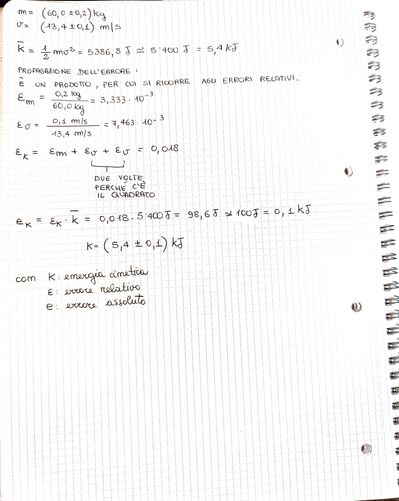 m = (60,0 ± 0,2) kg
v = (13,4 ± 0,1) m/s
K̅ = 1/2 mv² = 5386,8 J ≃ 5400 J = 5,4 kJ
PROPAGAZIONE DELL'ERRORE:
È UN PRODOTTO, PER CUI SI RICORRE AGLI ERRORI RELATIVI.
εm = 0,2 kg / 60,0 kg = 3,333 · 10⁻³
εv = 0,1 m/s / 13,4 m/s = 7,463 · 10⁻³
εK = εm + εv + εv = 0,018
DUE VOLTE
PERCHÉ C'È
IL QUADRATO
eK = εK · K̅ = 0,018 · 5400 J = 98,6 J ≃ 100 J = 0,1 kJ
K = (5,4 ± 0,1) kJ
con K: energia cinetica
ε: errore relativo
e: errore assoluto